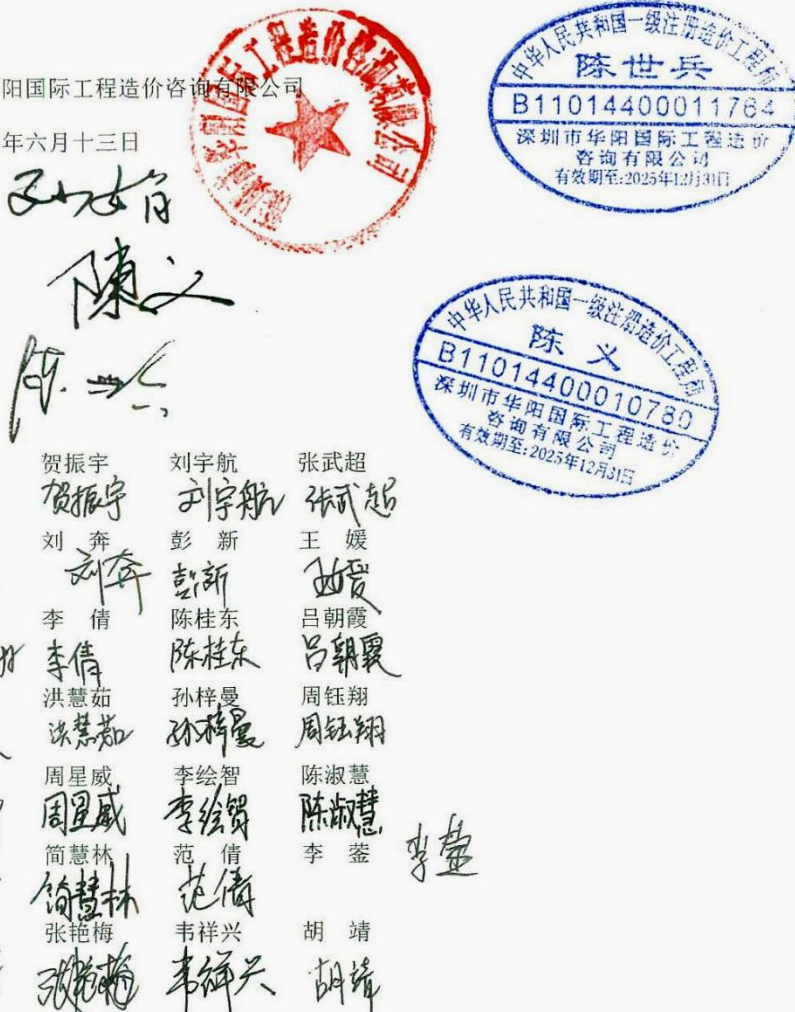 阳国际工程造价咨询有限公司
年六月十三日
深圳市华阳国际工程造价咨询有限公司
中华人民共和国一级注册造价工程师
陈世兵
B11014400011764
深圳市华阳国际工程造价
咨询有限公司
有效期至:2025年12月31日
陳义
陈世兵
中华人民共和国一级注册造价工程师
陈 义
B11014400010780
深圳市华阳国际工程造价
咨询有限公司
有效期至:2025年12月31日
贺振宇 刘宇航 张武超
贺振宇 刘宇航 张武超
刘 奔 彭 新 王 媛
刘奔 彭新 王媛
李 倩 陈桂东 吕朝霞
李倩 陈桂东 吕朝霞
洪慧茹 孙梓曼 周钰翔
洪慧茹 孙梓曼 周钰翔
周星威 李绘智 陈淑慧
周星威 李绘智 陈淑慧
简慧林 范 倩 李 蓥 李蓥
简慧林 范倩
张艳梅 韦祥兴 胡 靖
张艳梅 韦祥兴 胡靖